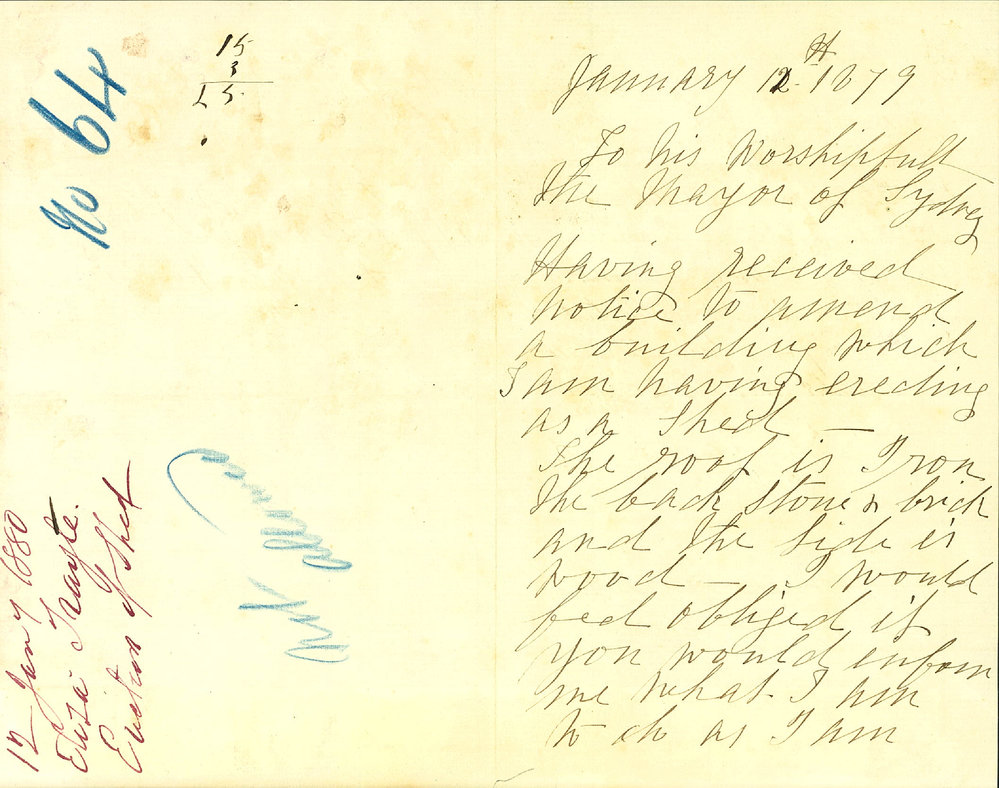 No 64
15
3
£5
12 Jany 1880
Eliza
Erection of Shed
January 12th 1879
To his Worshipfull
The Mayor of Sydney
Having received
notice to amend
a building which
I am having erecting
as a Shed —
The roof is Iron
the back stone & brick
and the side is
wood — I would
feel obliged if
you would inform
me what I am
to do as I am